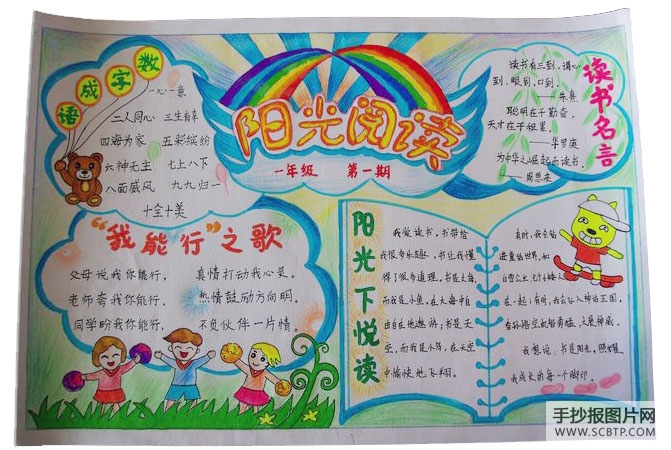 数字成语
一心一意
二人同心 三生有幸
四海为家 五彩缤纷
六神无主 七上八下
八面威风 九九归一
十全十美
阳光阅读
一年级 第一期
读书名言
读书有三到，谓心
到，眼到，口到。
——朱熹
聪明在于勤奋，
天才在于积累。
——华罗庚
为中华之崛起而读书。
——周恩来
“我能行”之歌
父母说我你能行， 真情打动我心灵。
老师夸我你能行， 热情鼓励方向明。
同学盼我你能行， 不负伙伴一片情。
阳光下悦读
我爱读书，书带给
我很多乐趣，书让我懂
得了很多道理。书是大海，
而我是小鱼，在大海中自
由自在地遨游；书是天
空，而我是小鸟，在天空
中愉快地飞翔。
有时，我会钻
进童话世界，和
白雪公主、七个小矮人
在一起；有时，我会让入神话王国，
看孙悟空机智勇猛，大展神威。
我想说：书是阳光，照耀
我成长的每一个脚印。
手抄报图片网
WWW.SCBTP.COM